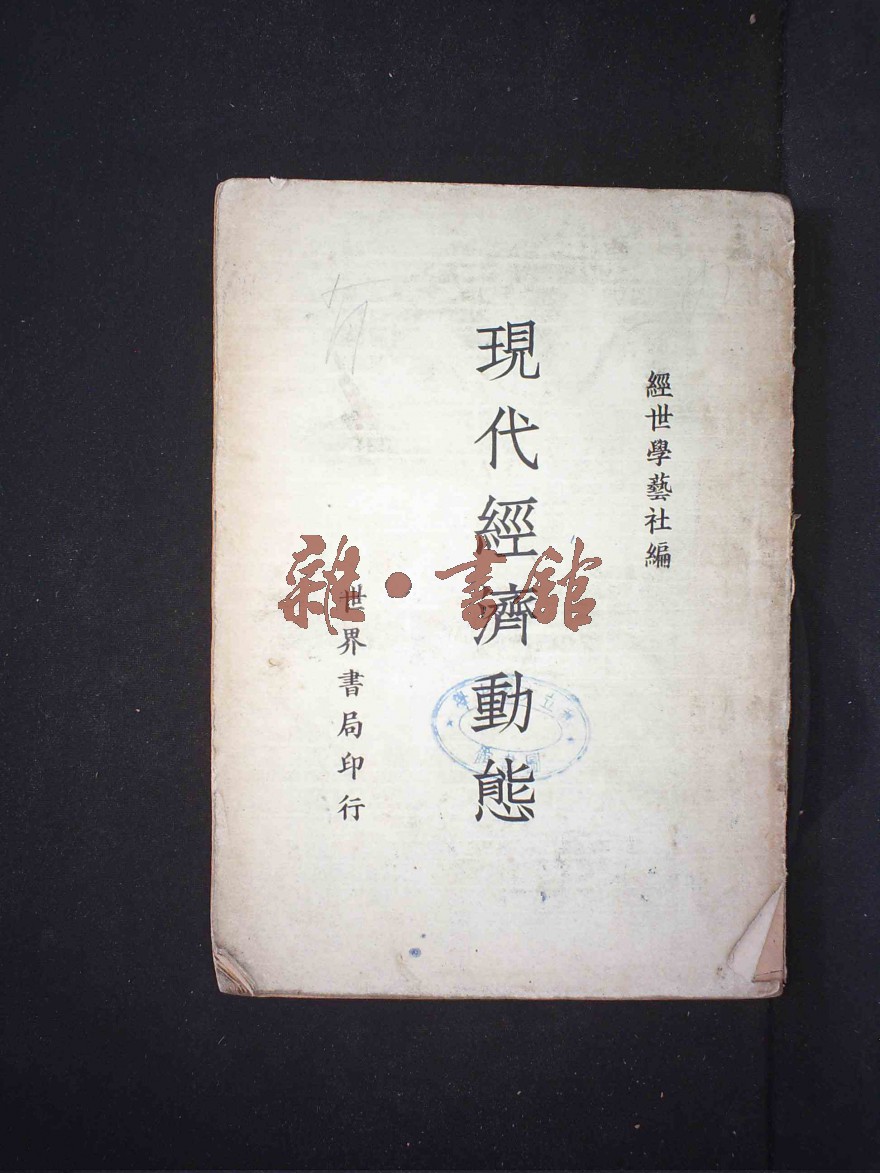 經世學藝社編
現代經濟動態
世界書局印行
雜·書館